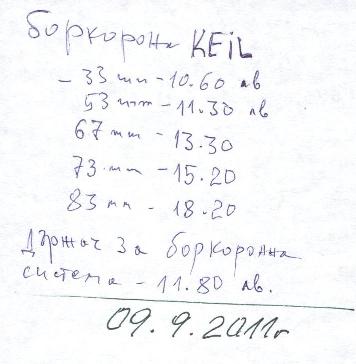 боркорони KEIL
- 33 mm - 10.60 лв
53 mm - 11.30 лв
67 mm - 13.30
73 mm - 15.20
83 mm - 18.20
Държач за боркоронна
система - 11.80 лв.
09.9.2011г